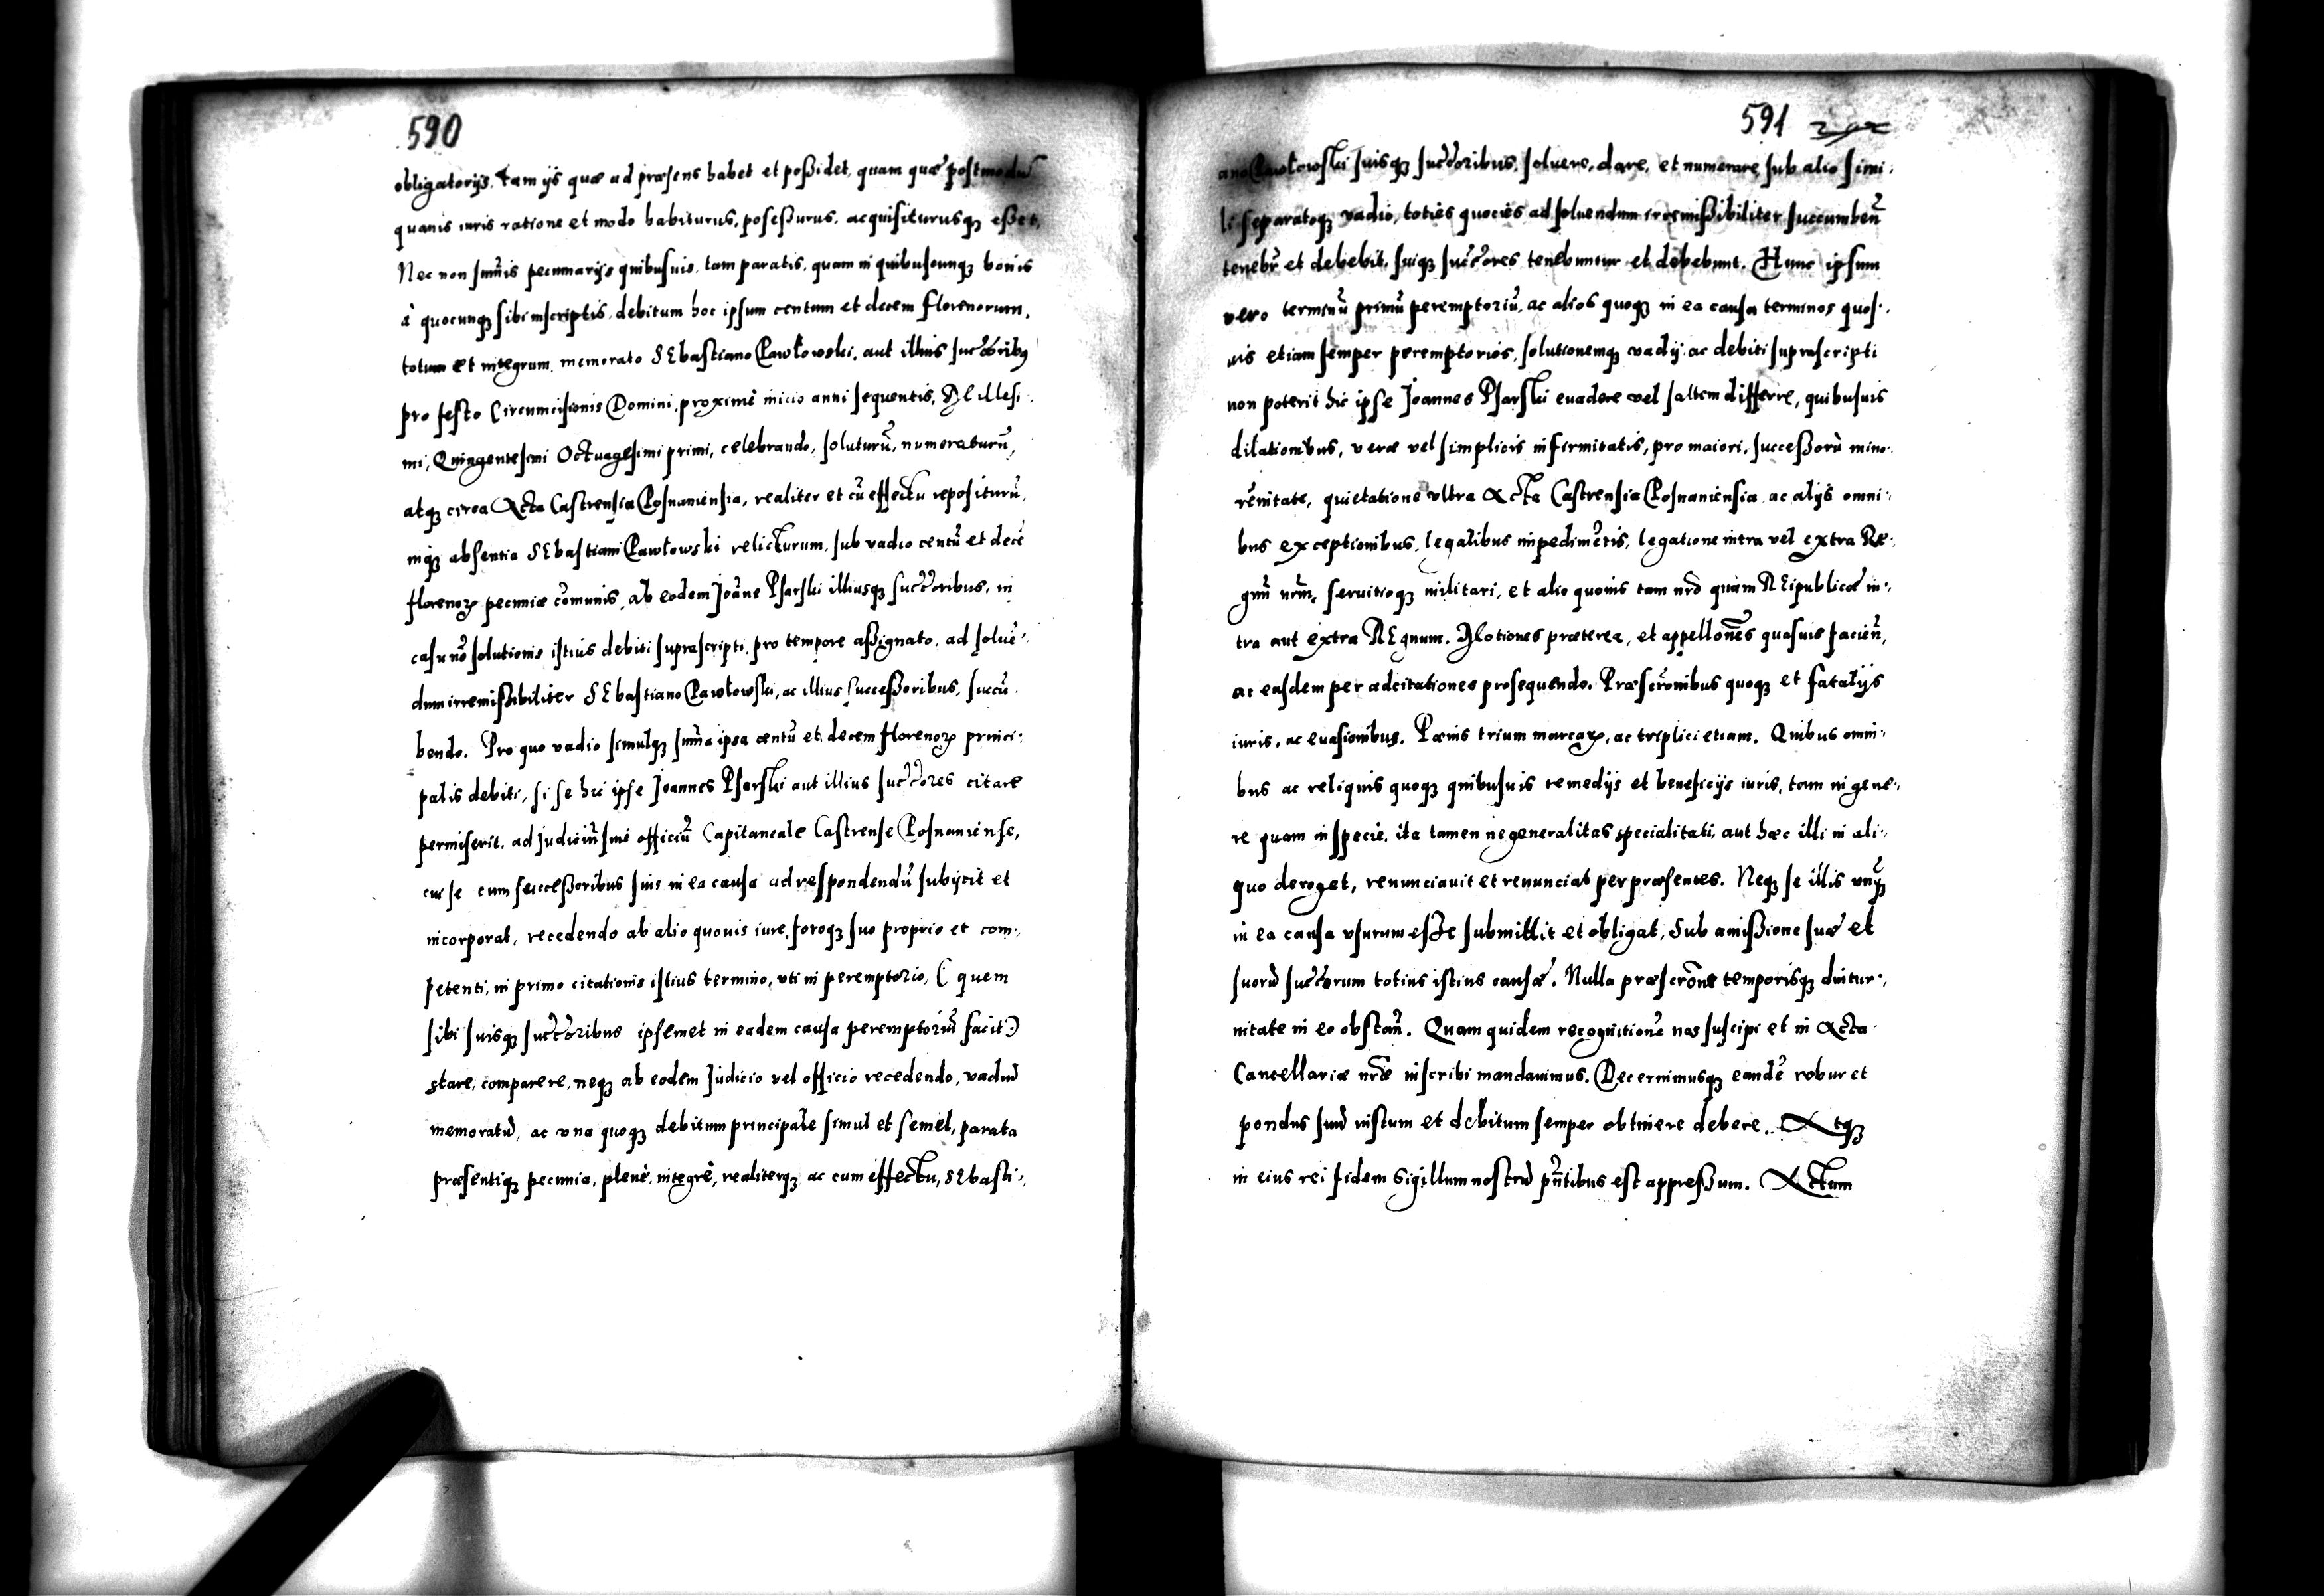 590
obligatorijs, tam ijs quæ ad præsens habet et poßidet, quam quæ postmodũ
quauis iuris ratione et modo habiturus, poseßurus, acquisiturusqꝫ eßet,
Nec non sum̃is pecuniarijs quibusuis, tam paratis, quam in quibuscunqꝫ bonis
à quocunqꝫ sibi inscriptis, debitum hoc ipsum centum et decem florenorum,
totum et integrum, memorato SEbastiano Pawłowski, aut illius succ̃oribꝯ
pro festo Circumcisionis Domini, proximè inicio anni sequentis, Millesi⸗
mi, Quingentesimi Octuagesimi primi, celebrando, soluturũ, numeraturũ,
atqꝫ circa Acta Castrensia Posnaniensia, realiter et cũ effectu repositurũ,
inqꝫ absentia SEbastiani Pawłowski relicturum, sub vadio centũ et decẽ
florenoꝝ pecuniæ cõmunis, ab eodem Joãne Psarski illiusqꝫ succ̃oribus, in
casu nõ solutionis istius debiti suprascripti, pro tempore aßignato, ad soluẽ⸗
dum irremißibiliter SEbastiano Pawłowski, ac illius succeßoribus, succũ⸗
bendo. Pro quo vadio simulqꝫ sum̃a ipsa centũ et decem florenoꝝ princi⸗
palis debiti, si se hic ipse Joannes Psarski aut illius succ̃ores citare
permiserit, ad judiciũ siue officiũ Capitaneale Castrense Posnaniense,
cui se cum succeßoribus suis in ea causa ad respondendũ subijcit et
incorporat, recedendo ab alio quouis iure, foroqꝫ suo proprio et com⸗
petenti, in primo citationis istius termino, vti in peremptorio, (quem
sibi suisqꝫ succ̃oribus ipsemet in eadem causa peremptoriũ facit)
stare, comparere, neqꝫ ab eodem Judicio vel officio recedendo, vadiũ
memoratũ, ac vna quoqꝫ debitum principale simul et semel, parata
præsentiqꝫ pecunia, plenè, integrè, realiterqꝫ ac cum effectu, SEbasti⸗
591
ano Pawłowski suisqꝫ succ̃oribus, soluere, dare, et numerare, sub alio simi⸗
li separatoqꝫ vadio, toties quoties ad soluendum irremißibiliter succumbeñ
tenebr̃ et debebit, suiqꝫ succ̃ores tenebuntur et debebunt. Hunc ipsum
vero terminũ primũ peremptoriũ, ac alios quoqꝫ in ea causa terminos quos⸗
uis etiam semper peremptorios, solutionemqꝫ vadij ac debiti suprascripti
non poterit hic ipse Joannes Psarski euadere vel saltem differre, quibusuis
dilationibus, veræ vel simplicis infirmitatis, pro maiori, succeßorũ mino⸗
rẽnitate, quietatione vltra Acta Castrensia Posnaniensia, ac alijs omni⸗
bus exceptionibus, legalibus impedimẽtis, legatione intra vel extra Re⸗
gnũ nr̃m, seruitioqꝫ militari, et alio quouis tam nr̃o quam REipublicæ in⸗
tra aut extra REgnum. Motiones præterea, et appellon̄es quasuis facieñ,
ac easdem per adcitationes prosequendo. Præscr̃onibus quoqꝫ et fatalijs
iuris, ac euasionibus. Pænis trium marcaꝝ, ac triplici etiam. Quibus omni⸗
bus ac reliquis quoqꝫ quibusuis remedijs et beneficijs iuris, tam in gene⸗
re quam in specie, ita tamen ne generalitas specialitati, aut hæc illi in ali⸗
quo deroget, renunciauit et renunciat per præsentes. Neqꝫ se illis vnqꝫ̃
in ea causa vsurum eße submittit et obligat, Sub amißione suæ et
suorũ succ̃orum totius istius causæ. Nulla præscr̃one temporisqꝫ diutur⸗
nitate in eo obstañ. Quam quidem recognitionẽ nos suscipi et in Acta
Cancellariæ nr̃æ inscribi mandauimus. Decernimusqꝫ eandẽ robur et
pondus suũ iustum et debitum semper obtinere debere. Atqꝫ
in eius rei fidem Sigillum nostrũ pñtibus est appreßum. Actum